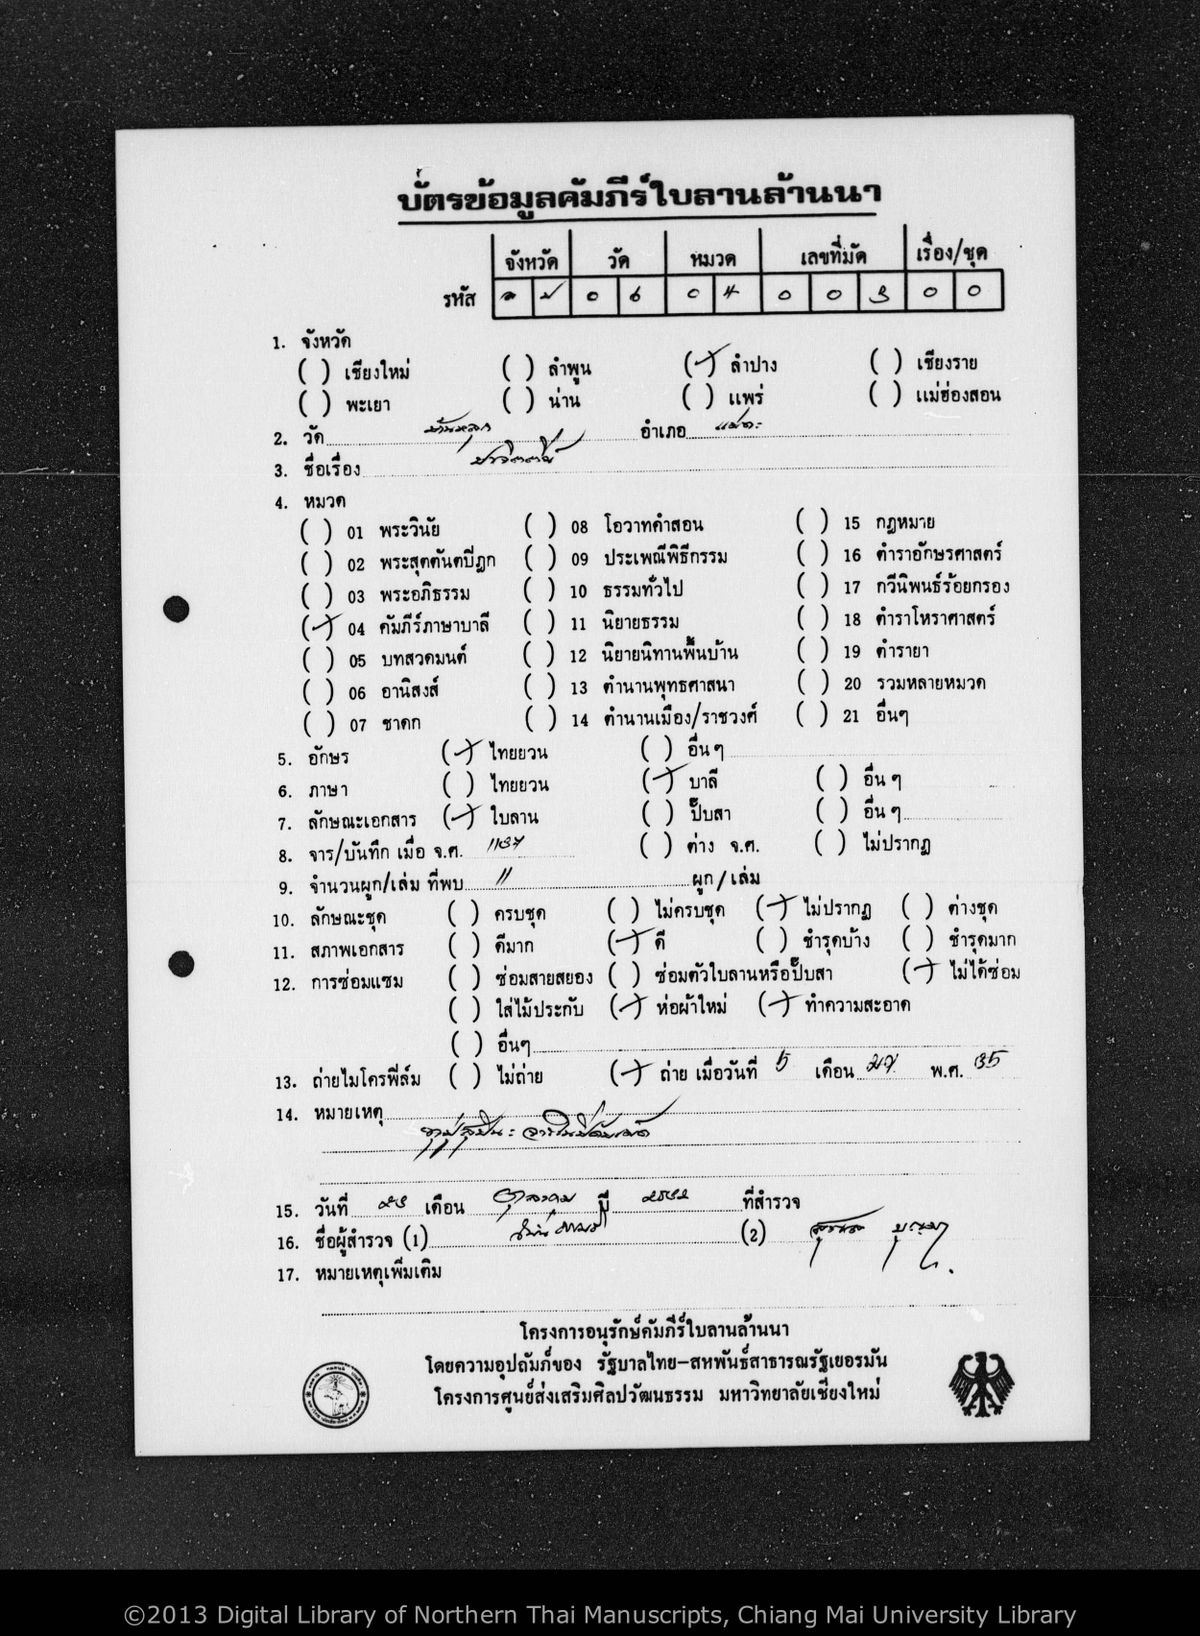 บัตรข้อมูลคัมภีร์ใบลานล้านนา
จังหวัด วัด หมวด เลขที่มัด เรื่อง/ชุด
รหัส ล ป 0 6 0 4 0 0 3 0 0
1. จังหวัด
( ) เชียงใหม่ ( ) ลำพูน (✓) ลำปาง ( ) เชียงราย
( ) พะเยา ( ) น่าน ( ) แพร่ ( ) แม่ฮ่องสอน
2. วัด บ้านหลุก อำเภอ แม่ทะ
3. ชื่อเรื่อง ปาจิตตีย์
4. หมวด
( ) 01 พระวินัย ( ) 08 โอวาทคำสอน ( ) 15 กฎหมาย
( ) 02 พระสุตตันตปิฎก ( ) 09 ประเพณีพิธีกรรม ( ) 16 ตำราอักษรศาสตร์
( ) 03 พระอภิธรรม ( ) 10 ธรรมทั่วไป ( ) 17 กวีนิพนธ์ร้อยกรอง
(✓) 04 คัมภีร์ภาษาบาลี ( ) 11 นิยายธรรม ( ) 18 ตำราโหราศาสตร์
( ) 05 บทสวดมนต์ ( ) 12 นิยายนิทานพื้นบ้าน ( ) 19 ตำรายา
( ) 06 อานิสงส์ ( ) 13 ตำนานพุทธศาสนา ( ) 20 รวมหลายหมวด
( ) 07 ชาดก ( ) 14 ตำนานเมือง/ราชวงศ์ ( ) 21 อื่นๆ
5. อักษร (✓) ไทยยวน ( ) อื่น ๆ
6. ภาษา ( ) ไทยยวน (✓) บาลี ( ) อื่น ๆ
7. ลักษณะเอกสาร (✓) ใบลาน ( ) ปั๊บสา ( ) อื่น ๆ
8. จาร/บันทึก เมื่อ จ.ศ. ( ) ต่าง จ.ศ. ( ) ไม่ปรากฏ
9. จำนวนผูก/เล่ม ที่พบ 11 ผูก/เล่ม
10. ลักษณะชุด ( ) ครบชุด ( ) ไม่ครบชุด (✓) ไม่ปรากฏ ( ) ต่างชุด
11. สภาพเอกสาร ( ) ดีมาก (✓) ดี ( ) ชำรุดบ้าง ( ) ชำรุดมาก
12. การซ่อมแซม ( ) ซ่อมสายสยอง ( ) ซ่อมตัวใบลานหรือปั๊บสา (✓) ไม่ได้ซ่อม
( ) ใส่ไม้ประกับ (✓) ห่อผ้าใหม่ (✓) ทำความสะอาด
( ) อื่นๆ
13. ถ่ายไมโครฟิล์ม ( ) ไม่ถ่าย (✓) ถ่าย เมื่อวันที่ 5 เดือน พ.ศ. 35
14. หมายเหตุ
15. วันที่ ๒๓ เดือน ตุลาคม ปี ๒๕๓๒ ที่สำรวจ
16. ชื่อผู้สำรวจ (1) (2)
17. หมายเหตุเพิ่มเติม
โครงการอนุรักษ์คัมภีร์ใบลานล้านนา
โดยความอุปถัมภ์ของ รัฐบาลไทย-สหพันธ์สาธารณรัฐเยอรมัน
โครงการศูนย์ส่งเสริมศิลปวัฒนธรรม มหาวิทยาลัยเชียงใหม่
©2013 Digital Library of Northern Thai Manuscripts, Chiang Mai University Library